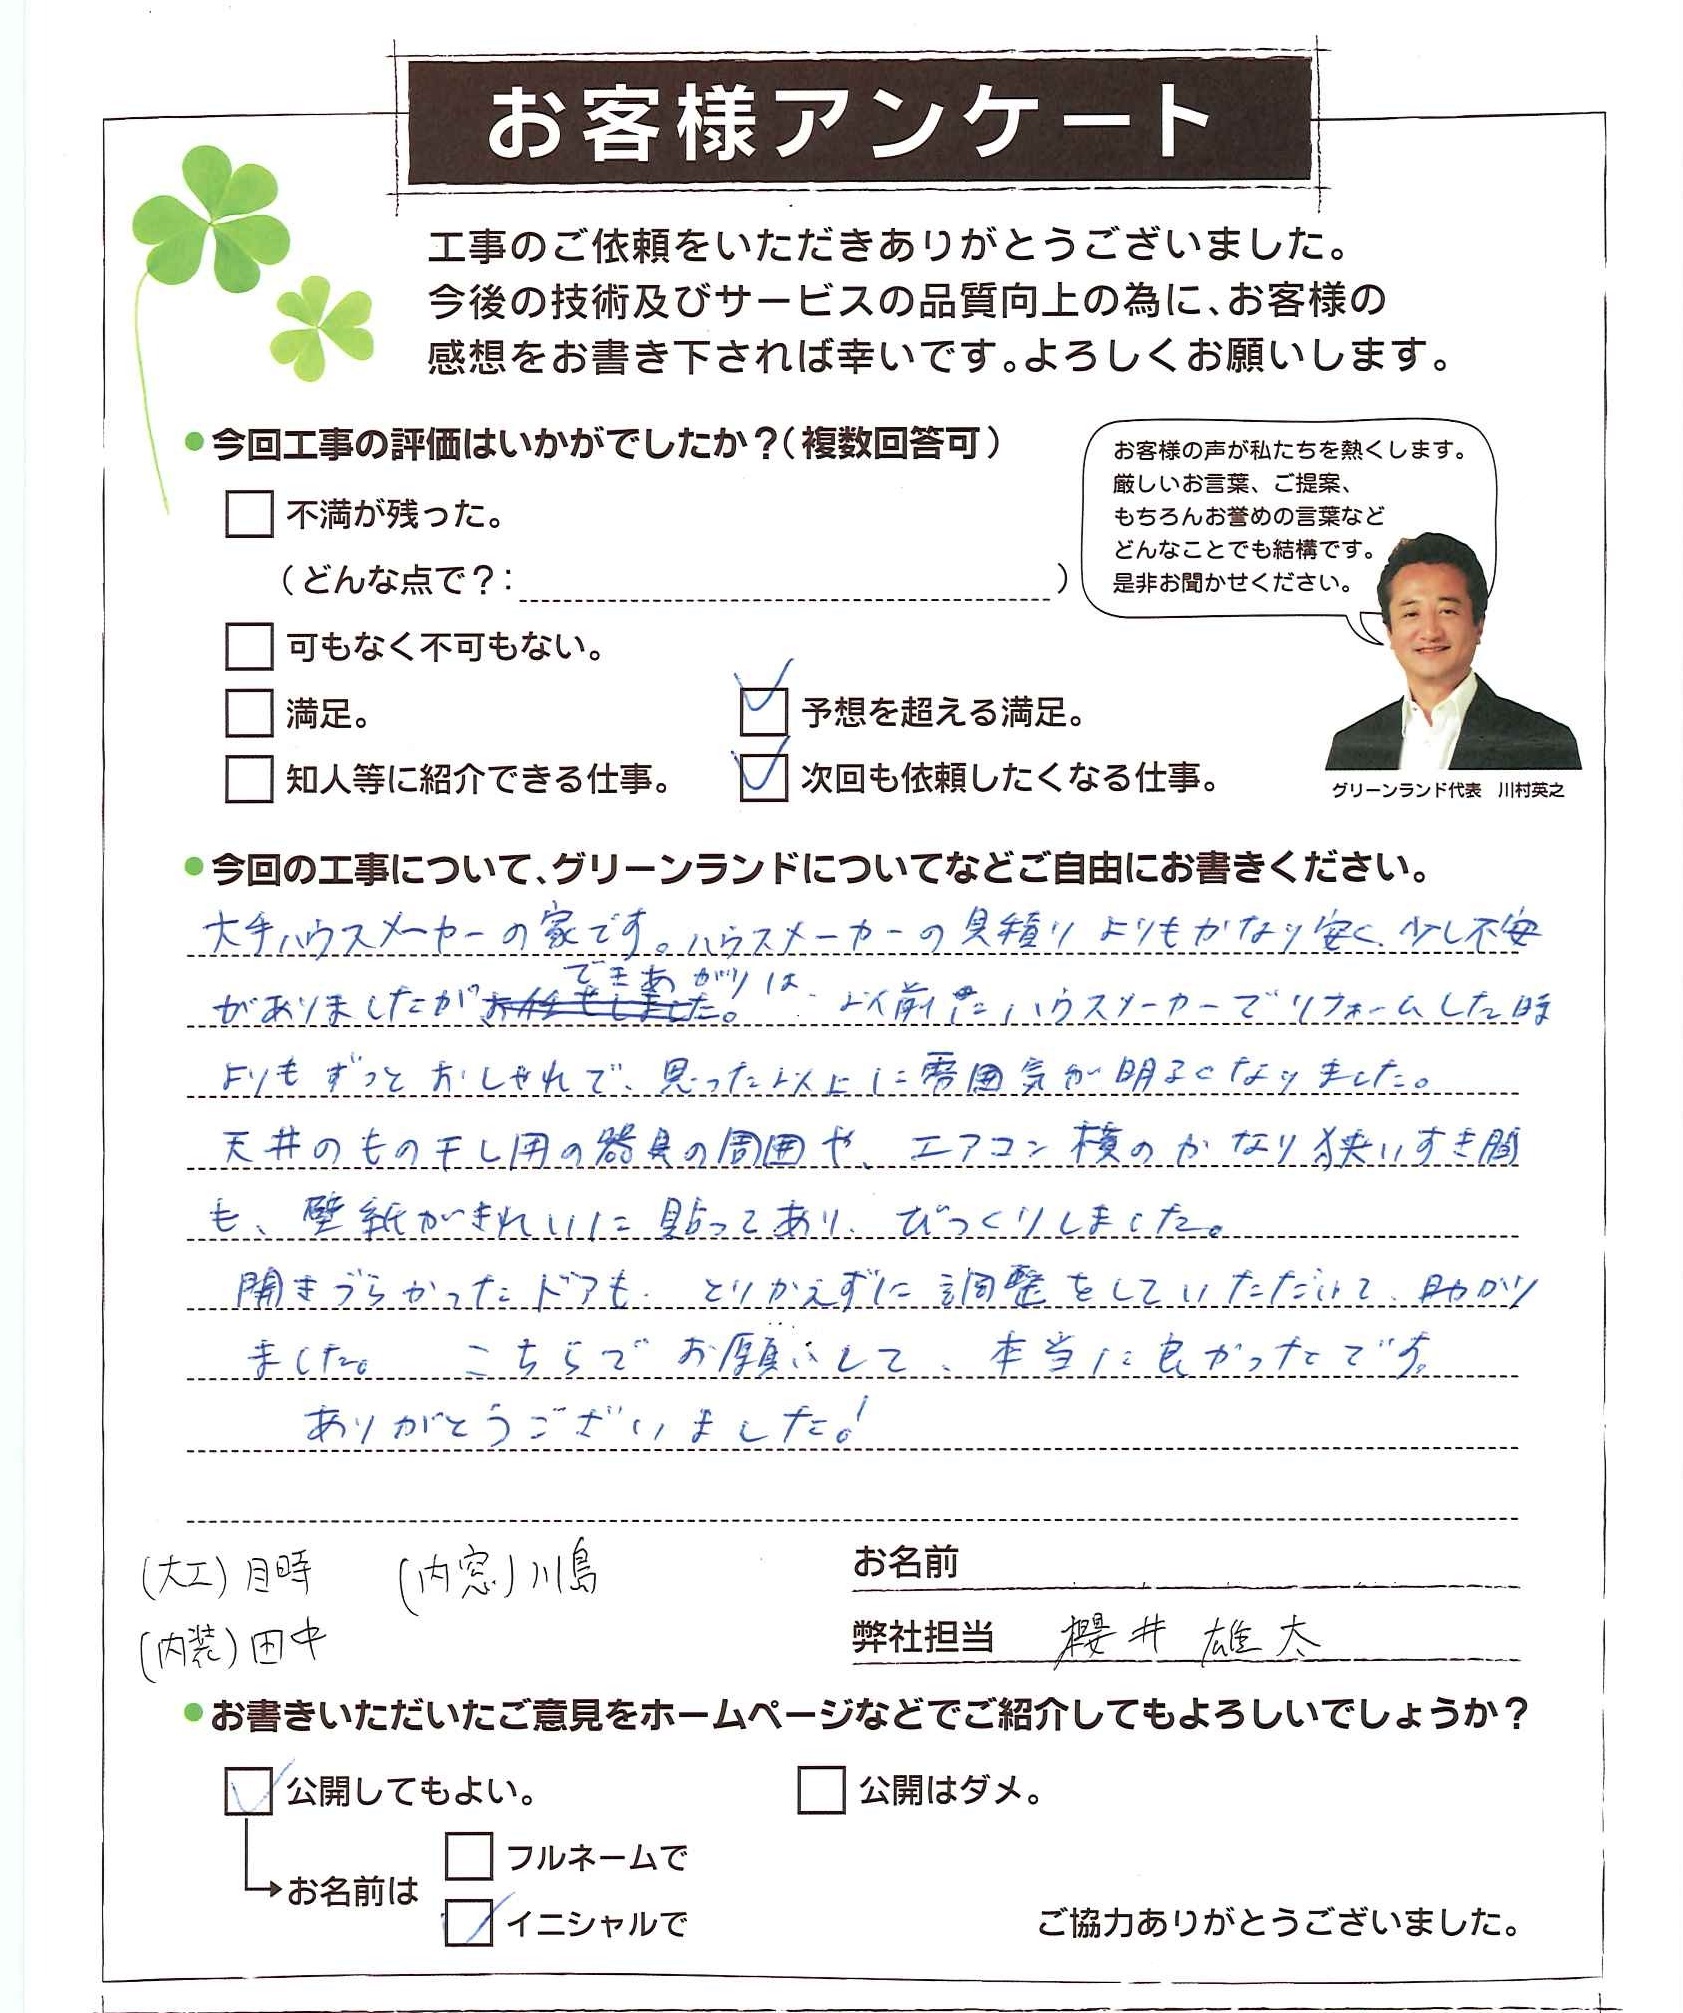 お客様アンケート
工事のご依頼をいただきありがとうございました。
今後の技術及びサービスの品質向上の為に、お客様の
感想をお書き下されば幸いです。よろしくお願いします。
●今回工事の評価はいかがでしたか？（複数回答可）
お客様の声が私たちを熱くします。
厳しいお言葉、ご提案、
もちろんお誉めの言葉など
どんなことでも結構です。
是非お聞かせください。
グリーンランド代表　川村英之
不満が残った。
（どんな点で？：　　　）
可もなく不可もない。
満足。
予想を超える満足。
知人等に紹介できる仕事。
次回も依頼したくなる仕事。
●今回の工事について、グリーンランドについてなどご自由にお書きください。
大手ハウスメーカーの家です。ハウスメーカーの見積りよりもかなり安く、少し不安
がありましたができあがりは、以前にハウスメーカーでリフォームした時
よりもずっとおしゃれで、思った以上に雰囲気が明るくなりました。
天井のもの干し用の器具の周囲や、エアコン横のかなり狭いすき間
も、壁紙がきれいに貼ってあり、びっくりしました。
開きづらかったドアも、とりかえずに調整をしていただいて、助かり
ました。　こちらでお願いして、本当に良かったです。
ありがとうございました！
(大工)月時　(内窓)川島
(内装)田中
お名前
弊社担当　櫻井 雄太
●お書きいただいたご意見をホームページなどでご紹介してもよろしいでしょうか？
公開してもよい。
公開はダメ。
お名前は
フルネームで
イニシャルで
ご協力ありがとうございました。